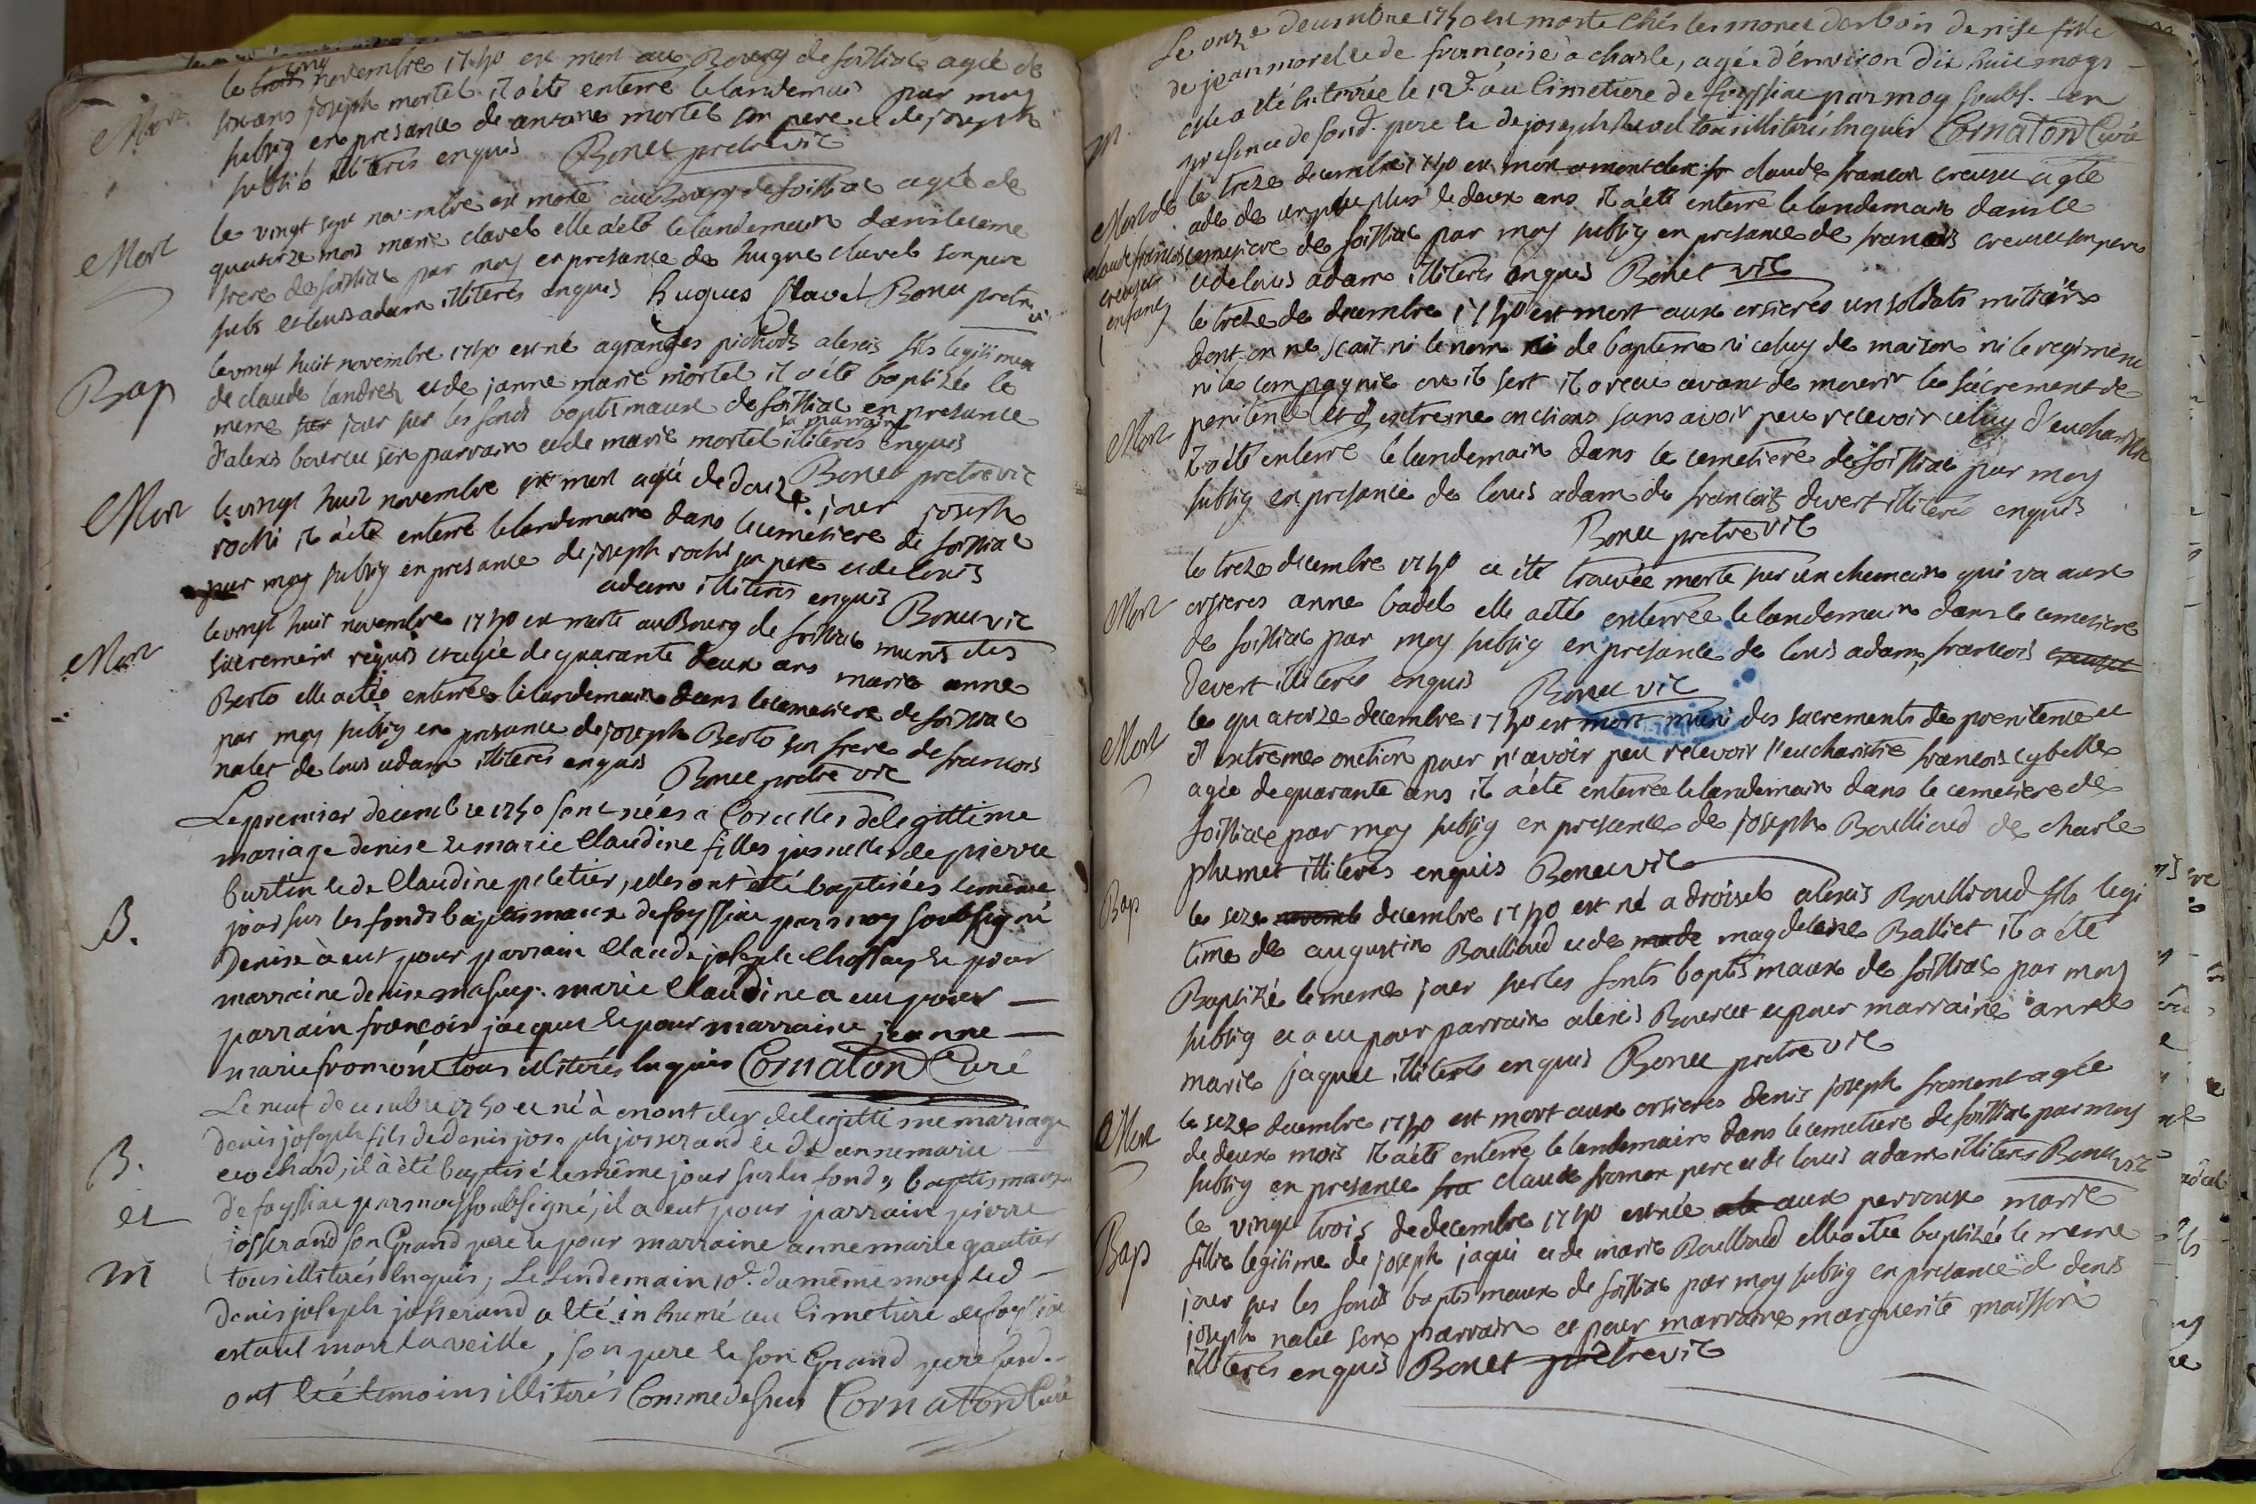 le trois cinq novembre 1740 est mort au Bourg de foissiac agée de
six ans joseph mortel il a été enterré le landemain par moy
Mort
subsig en presance de antoine mortel son pere et de joseph
illiterés enquis Bonet pretre vic
le vingt sept novembre est morte au Bourg de foissiac agée de
Mort
quatorze mois marie clavel elle a été le landemain dans le ceme
tiere de foissiac par moy en presance de hugue clavel son pere
subs et louis adam illiterés enquis hugues Clavel Bonet pretre vi
le vingt huit novembre 1740 est né a granges pichods alexis fils legitime
Bap
de claude landrei et de janne marie mortel il a été baptizée le
meme sur jour sur les fonds baptismaux de foissiac en presance
d'alexis bouveu son parrain et de marie mortel sa marraine illiterés enquis
Bonet pretre vic
Mort
le vingt huit novembre est mort agé de douze jour joseph
rochi il a été enterré le landemain dans le cemetiere de foissiac
par moy subsig en presance de joseph rochi son pere et de louis
adam illiterés enquis Bonet vic
Mort
le vingt huit novembre 1740 est morte au Bourg de foissiac munis des
sacrement réquis et agée de quarante deux ans marie anne
Berto elle a étée enterrée le landemain dans le cemetiere de foissiac
par moy subsig en presance de joseph Berto son frere de francois
nalet de louis adam illiterés enquis Bonet pretre vic
Le premier decembre 1740 sont nées a Corcelles de legittime
mariage denise et marie Claudine filles jumelles de pierre
burtin et de Claudine peletier, elles ont été baptisées le même
B.
jour sur les fonds baptismaux de foyssiac par moy soubsigné
Denise à eut pour parrain Claude joseph Chossay et pour
marraine denise masuy. marie Claudine a eu pour
parrain françois jacques et pour marraine jeanne
marie fromént tous illiterés enquis Cornaton Curé
Le neuf decembre 1740 est né à mont der de legittime mariage
denis joseph fils de denis joseph josserand et de anne marie
B.
crochard; il à été baptisé le même jour sur les fonds baptismaux
de foyssiac par moy soubsigné; il a eut pour parrain pierre
et
josserand son Grand pere et pour marraine anne marie gautier
tous illiterés enquis; Le Lendemain 10e. du même mois led
m
denis joseph josserand a été inhumé au Cimetiere de foyssiac
estant mort la veille, son pere et son Grand pere susd.
ont été temoins illiterés Comme dessus Cornaton Curé
Le onze decembre 1740 est morte chés les morel darbois denise fille
de jean morel et de françoise à charle, agée d'environ dix huit moys
elle a été Enterrée le 12e. au Cimetiere de foyssiac par moy soubs. en
m
presence de sond. pere et de joseph revel tous illiterés Enquis Cornaton Curé
le treze decembre 1740 est mort a mont der fr claude francois creuset agée
Mort de claude francois creuset enfant
ade de un peu plus de deux ans il a été enterré le landemain dans le
cemetiere de foissiac par moy subsig en presance de francois creuset son pere
et de louis adam illiterés enquis Bonet vic
le treze de decembre 1740 est mort aux orsieres un soldats militaire
dont on ne scait ni le nom ni de baptême ni celuy de maison ni le regiment
ni la compagnie ou il sert il a receu avant de mourir le sacrement de
Mort
penitence et d'extreme onctions sans avoir peu recevoir celuy d'eucharistie
il a été enterré le landemain dans le cemetiere de foissiac par moy
subsig en presance de louis adam de francois devert illiterés enquis
Bonet pretre vic
le treze decembre 1740 a été trouvée morte sur un chemain qui va aux
Mort
orsieres anne badel elle a été enterrée le landemain dans le cemetiere
de foissiac par moy subsig en presance de louis adam francois creuset
devert illiterés enquis Bonet vic
Mort
le quatorze decembre 1740 est mort muni des sacrements de penitence et
d'extreme onction pour n'avoir peu recevoir l'eucharistie francois cybelle
agée de quarante ans il a été enterrée le landemain dans le cemetiere de
foissiac par moy subsig en presance de joseph Boulliaud de charle
plumet illiterés enquis Bonet vic
Bap
le seze novemb decembre 1740 est né a droisel alexis Boulliaud fils legi
time de augustin Boulliaud et de made magdeleine Balliet il a été
Baptizé le meme jour sur les fonts baptismaux de foissiac par moy
subsig et a eu pour parrain alexis Bouveret et pour marraine anne
marie jaquet illiterés enquis Bonet pretre vic
Mort
le seze decembre 1740 est mort aux orsieres denis joseph froment agée
de deux mois il a été enterré le landemain dans le cemetiere de foissiac par moy
subsig en presance fra claude froment pere et de louis adam illiterés Bonet vic
le vingt trois de decembre 1740 est née ale aux perroux marie
Bap
fille legitime de joseph jaqui et de marie Boulliaud elle a été baptizée le meme
jour sur les fonds baptismaux de foissiac par moy subsig en presance d denis
joseph nalet son parrain et pour marraine marguerite moisson
illiterés enquis Bonet pretre vic